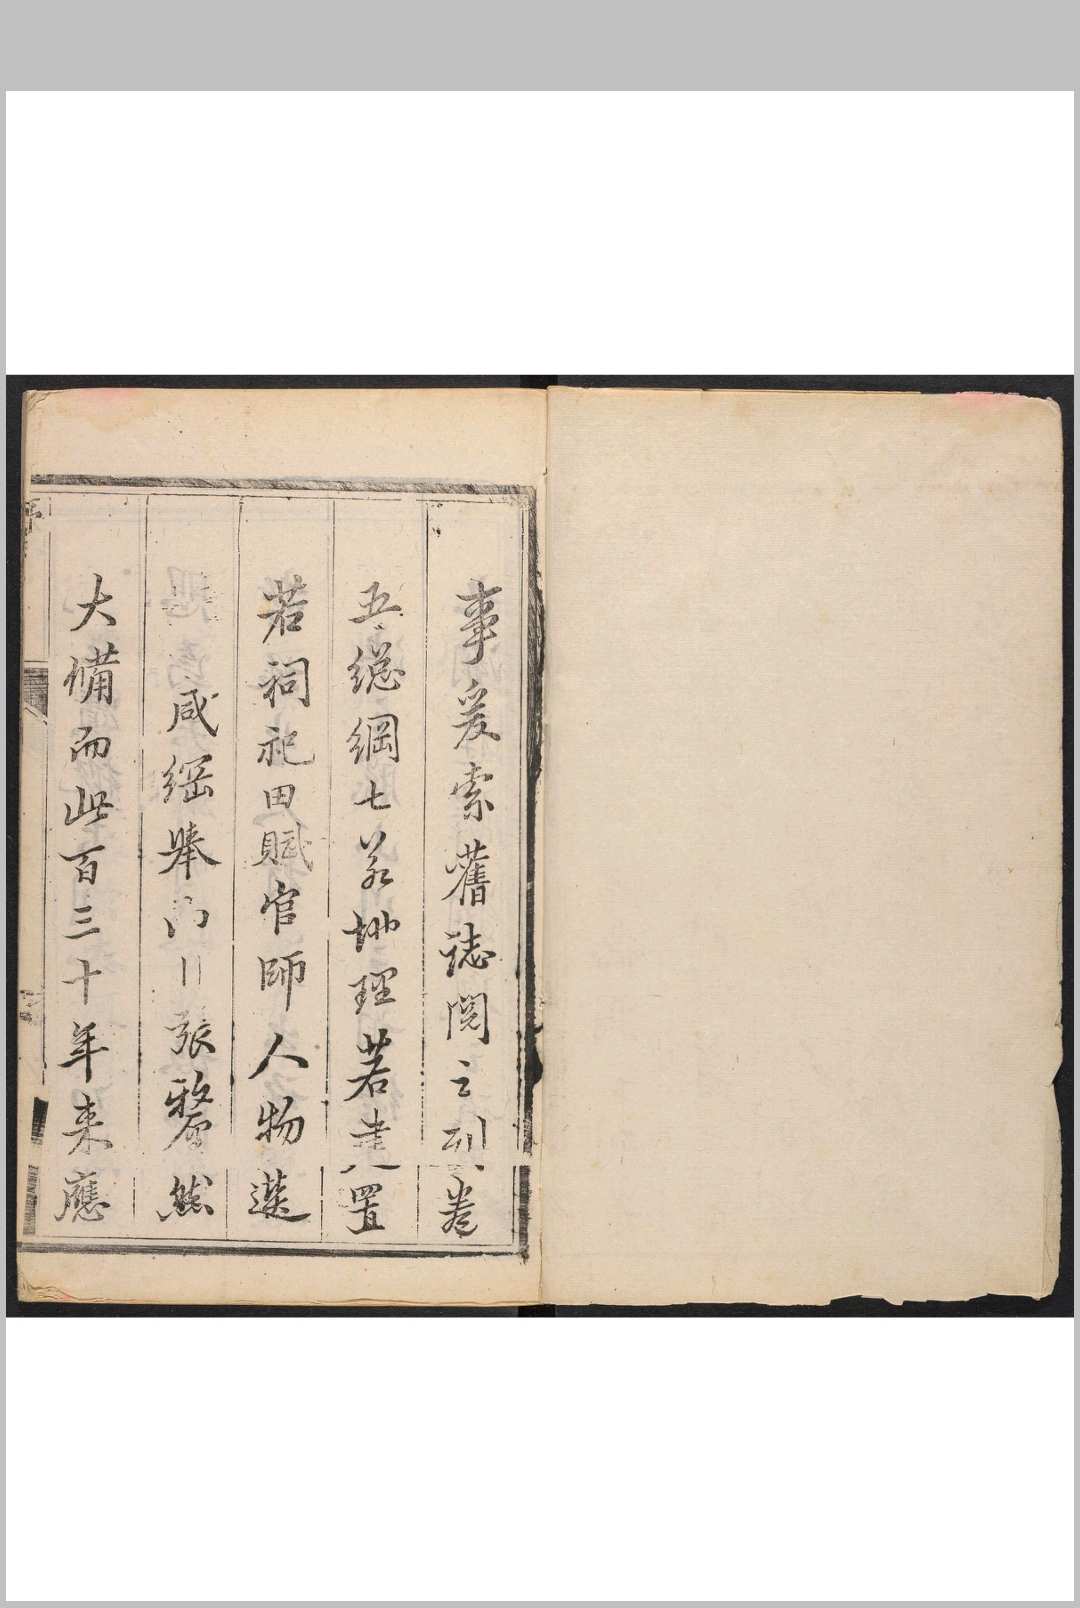 事爰索舊誌閱之列卷
五總綱七若地理若建置
若祠祀田賦官師人物選
咸綱舉門張釐然
大備而此百三十年来應
序